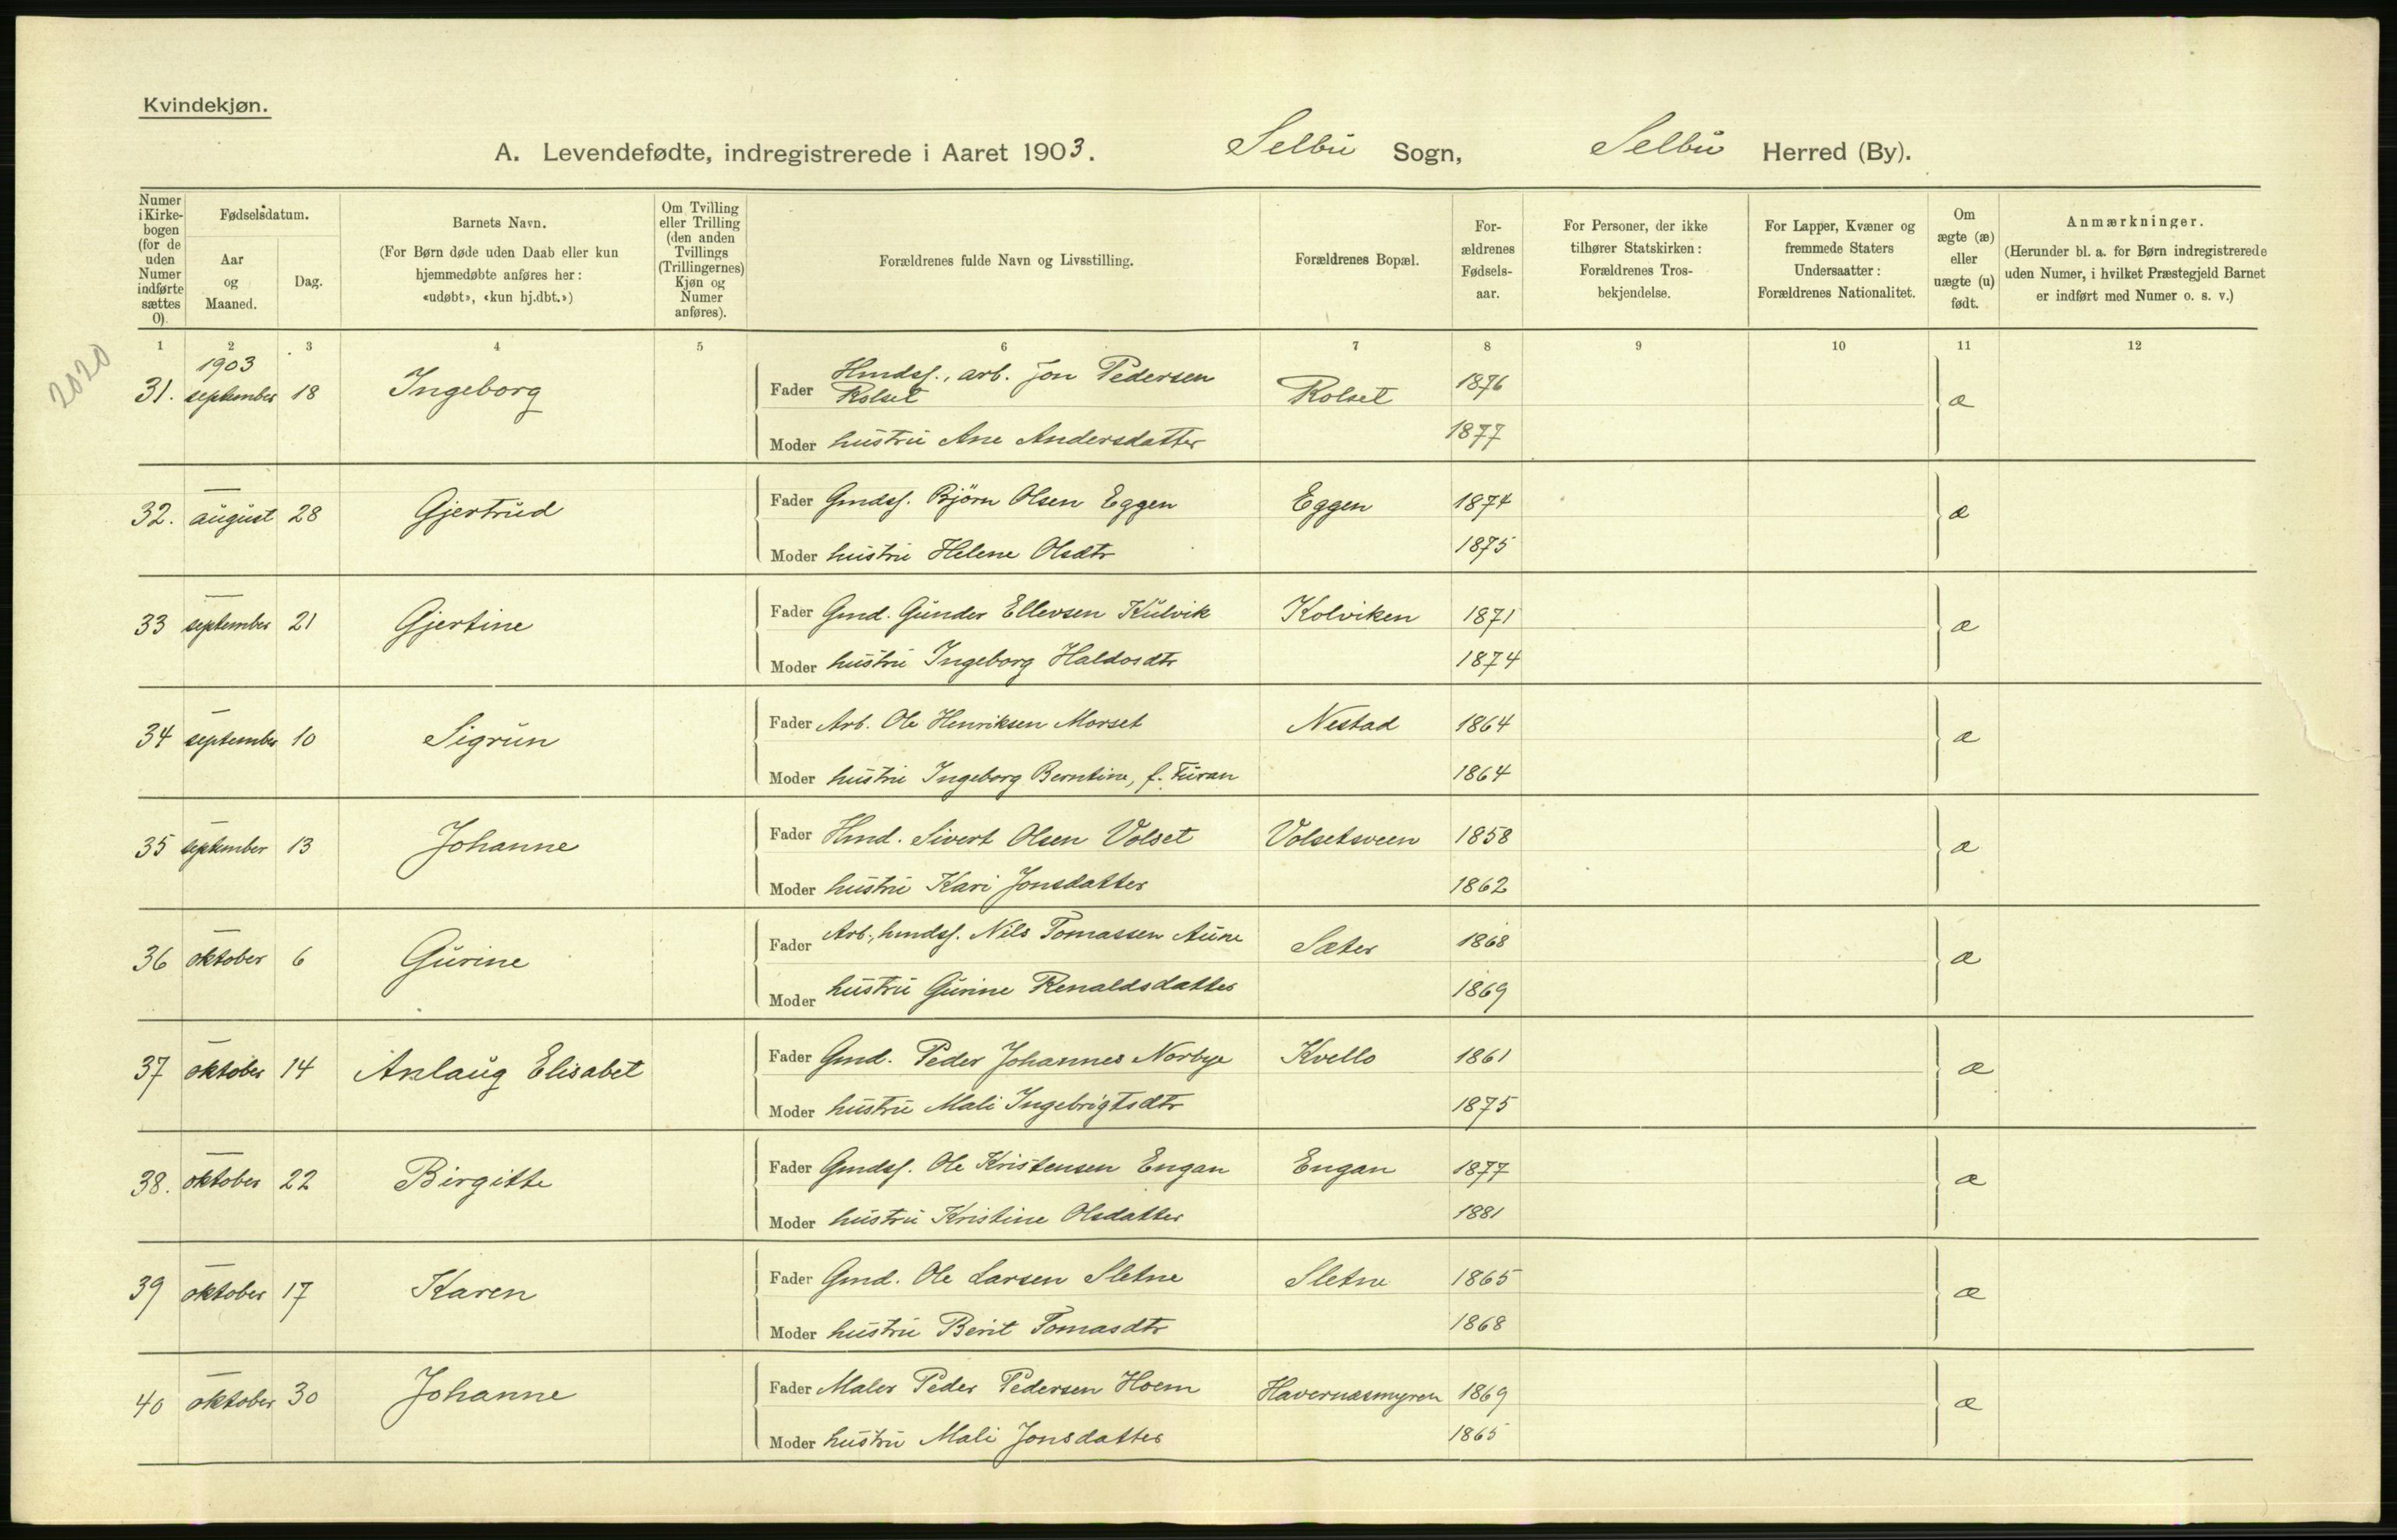 Kvindekjøn.
A. Levendefødte, indregistrerede i Aaret 1903. Selbu Sogn, Selbu Herred (By).
Numer i Kirkebogen (for de uden Numer indførte sættes 0).
Fødselsdatum.
Aar og Maaned.
Dag.
Barnets Navn.
(For Børn døde uden Daab eller kun hjemmedøbte anføres her: «udøbt», «kun hj.dbt.»)
Om Tvilling eller Trilling (den anden Tvillings (Trillingernes) Kjøn og Numer anføres).
Forældrenes fulde Navn og Livsstilling.
Forældrenes Bopæl.
Forældrenes Fødselsaar.
For Personer, der ikke tilhører Statskirken: Forældrenes Trosbekjendelse.
For Lapper, Kvæner og fremmede Staters Undersaatter: Forældrenes Nationalitet.
Om ægte (æ) eller uægte (u) født.
Anmærkninger.
(Herunder bl. a. for Børn indregistrerede uden Numer, i hvilket Præstegjeld Barnet er indført med Numer o. s. v.)
1 2 3 4 5 6 7 8 9 10 11 12
2020
1903
31. september 18 Ingeborg Fader Hmdsf., arb. Jon Pedersen Rolset Rolset 1876 æ
Moder hustru Ane Andersdatter 1877
32. – august 28 Gjertrud Fader Gmdsf. Bjørn Olsen Eggen Eggen 1874 æ
Moder hustru Helene Olsdtr 1875
33 – september 21 Gjertine Fader Gmd. Gunder Ellevsen Kulvik Kolviken 1871 æ
Moder hustru Ingeborg Haldosdtr 1874
34 – september 10 Sigrun Fader Arb. Ole Henriksen Morset Nestad 1864 æ
Moder hustru Ingeborg Berntine, f. Furan 1864
35 – september 13 Johanne Fader Hmd. Sivert Olsen Volset Volsetsveen 1858 æ
Moder hustru Kari Jonsdatter 1862
36 – oktober 6 Gurine Fader Arb., hmdsf. Nils Tomassen Aune Sæter 1868 æ
Moder hustru Gurine Renaldsdatter 1869
37 – oktober 14 Anlaug Elisabet Fader Gmd. Peder Johannes Norbye Kvello 1861 æ
Moder hustru Mali Ingebrigtsdtr 1875
38. – oktober 22 Birgitte Fader Gmdsf. Ole Kristensen Engan Engan 1877 æ
Moder hustru Kristine Olsdatter 1881
39 – oktober 17 Karen Fader Gmd. Ole Larsen Sletne Sletne 1865 æ
Moder hustru Berit Tomasdtr 1868
40 – oktober 30 Johanne Fader Maler Peder Pedersen Hoem Havernæsmyren 1869 æ
Moder hustru Mali Jonsdatter 1865